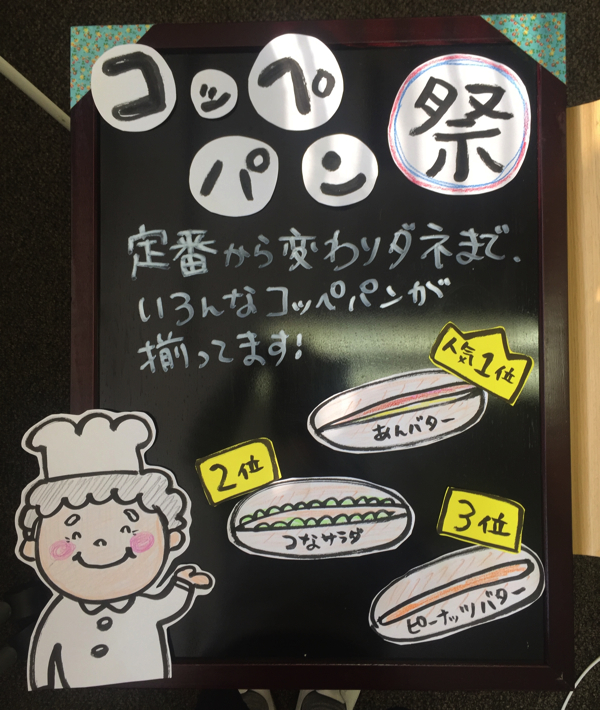 コッペ
パン
祭
定番から変わりダネまで、
いろんなコッペパンが
揃ってます!
人気1位
あんバター
2位
つなサラダ
3位
ピーナッツバター